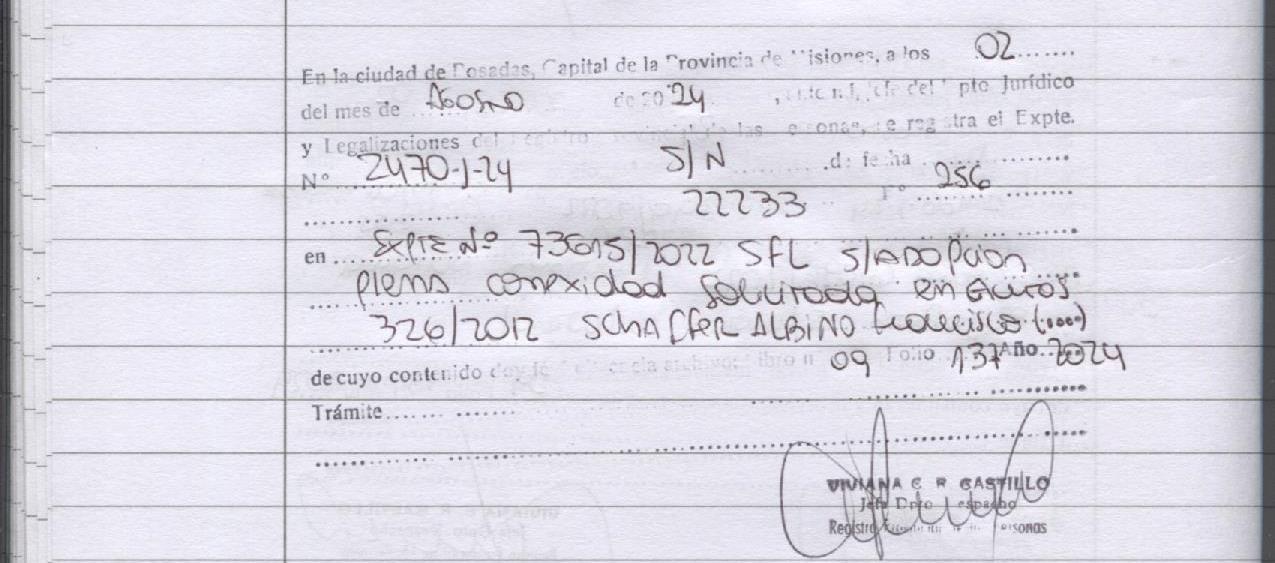 En la ciudad de Posadas, Capital de la Provincia de Misiones, a los 02.......
del mes de Agosto de 2024 , ante mí, Jefe del Dpto Jurídico
y Legalizaciones del Registro Provincial de las Personas, se registra el Expte.
N° 2470-J-24 S/N de fecha
22233 F° 256
en Expte Nº 73615/2022 SFL S/ADOPcion
plena conexidad solicitada en autos
326/2012 SCHAffER ALBINO francisco (....)
de cuyo contenido doy fé archivo: libro n 09 Folio 137 Año 2024
Trámite
VIVIANA C R CASTILLO
Jefe Dpto Despacho
Registro Personas